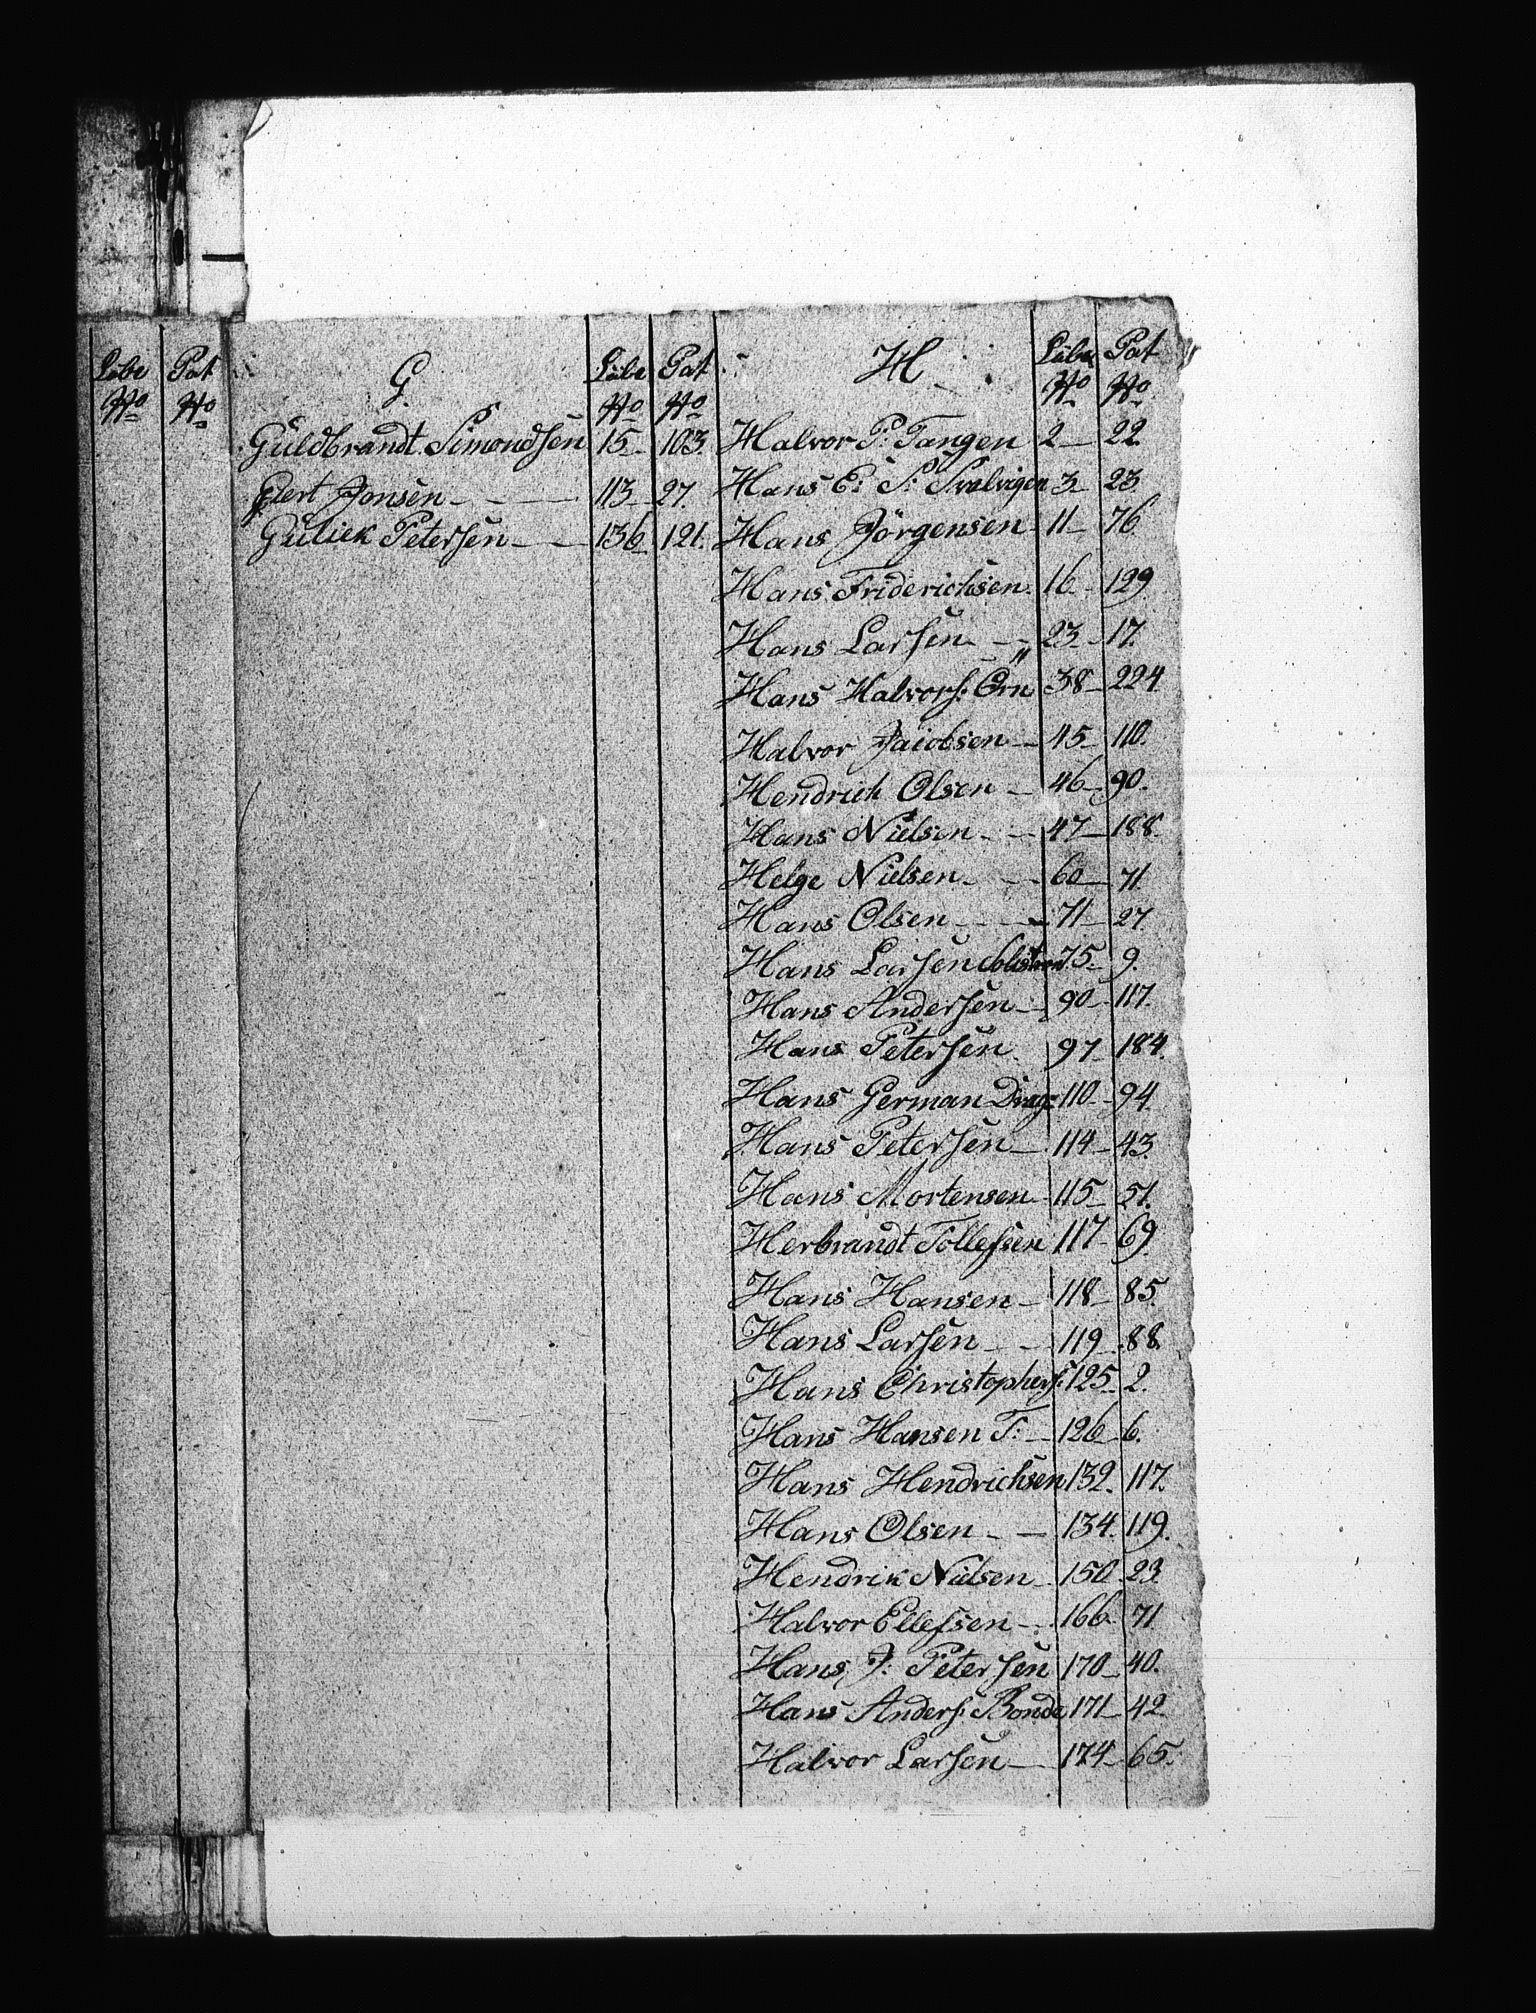 Löbe Pat
No No
G Löbe Pat
No No
Guldbrandt Simondsen 15 103.
Giert Jonsen 113 27.
Guliek Petersen 136 121.
H Löbe Pat
No No
Halvor P: Tangen 2 22
Hans E: S: Svalvigen 3 23
Hans Jörgensen 11 76
Hans Friderichsen 16 129
Hans Larsen 23 17.
Hans Halvors: Örn 38 224
Halvor Jaiobsen 45 110.
Hendrich Olsen 46 90.
Hans Nielsen 47 188.
Helge Nielsen 60 71.
Hans Olsen 71 27
Hans Larsen 75 9.
Hans Andersen 90 117.
Hans Petersen 97 184.
Hans German Drag: 110 94
Hans Petersen 114 43.
Hans Mortensen 115 51.
Herbrandt Tollefsen 117 69
Hans Hansen 118 85.
Hans Larsen 119 88.
Hans Christophers: 125 2.
Hans Hansen T: 126 6.
Hans Hendrichsen 132. 117.
Hans Olsen 134. 119.
Hendrik Nielsen 150 23.
Halvor Ellefsen 166 71
Hans J: Petersen 170 40.
Hans Anders: Bonde 171 42
Halvor Larsen 174 65.